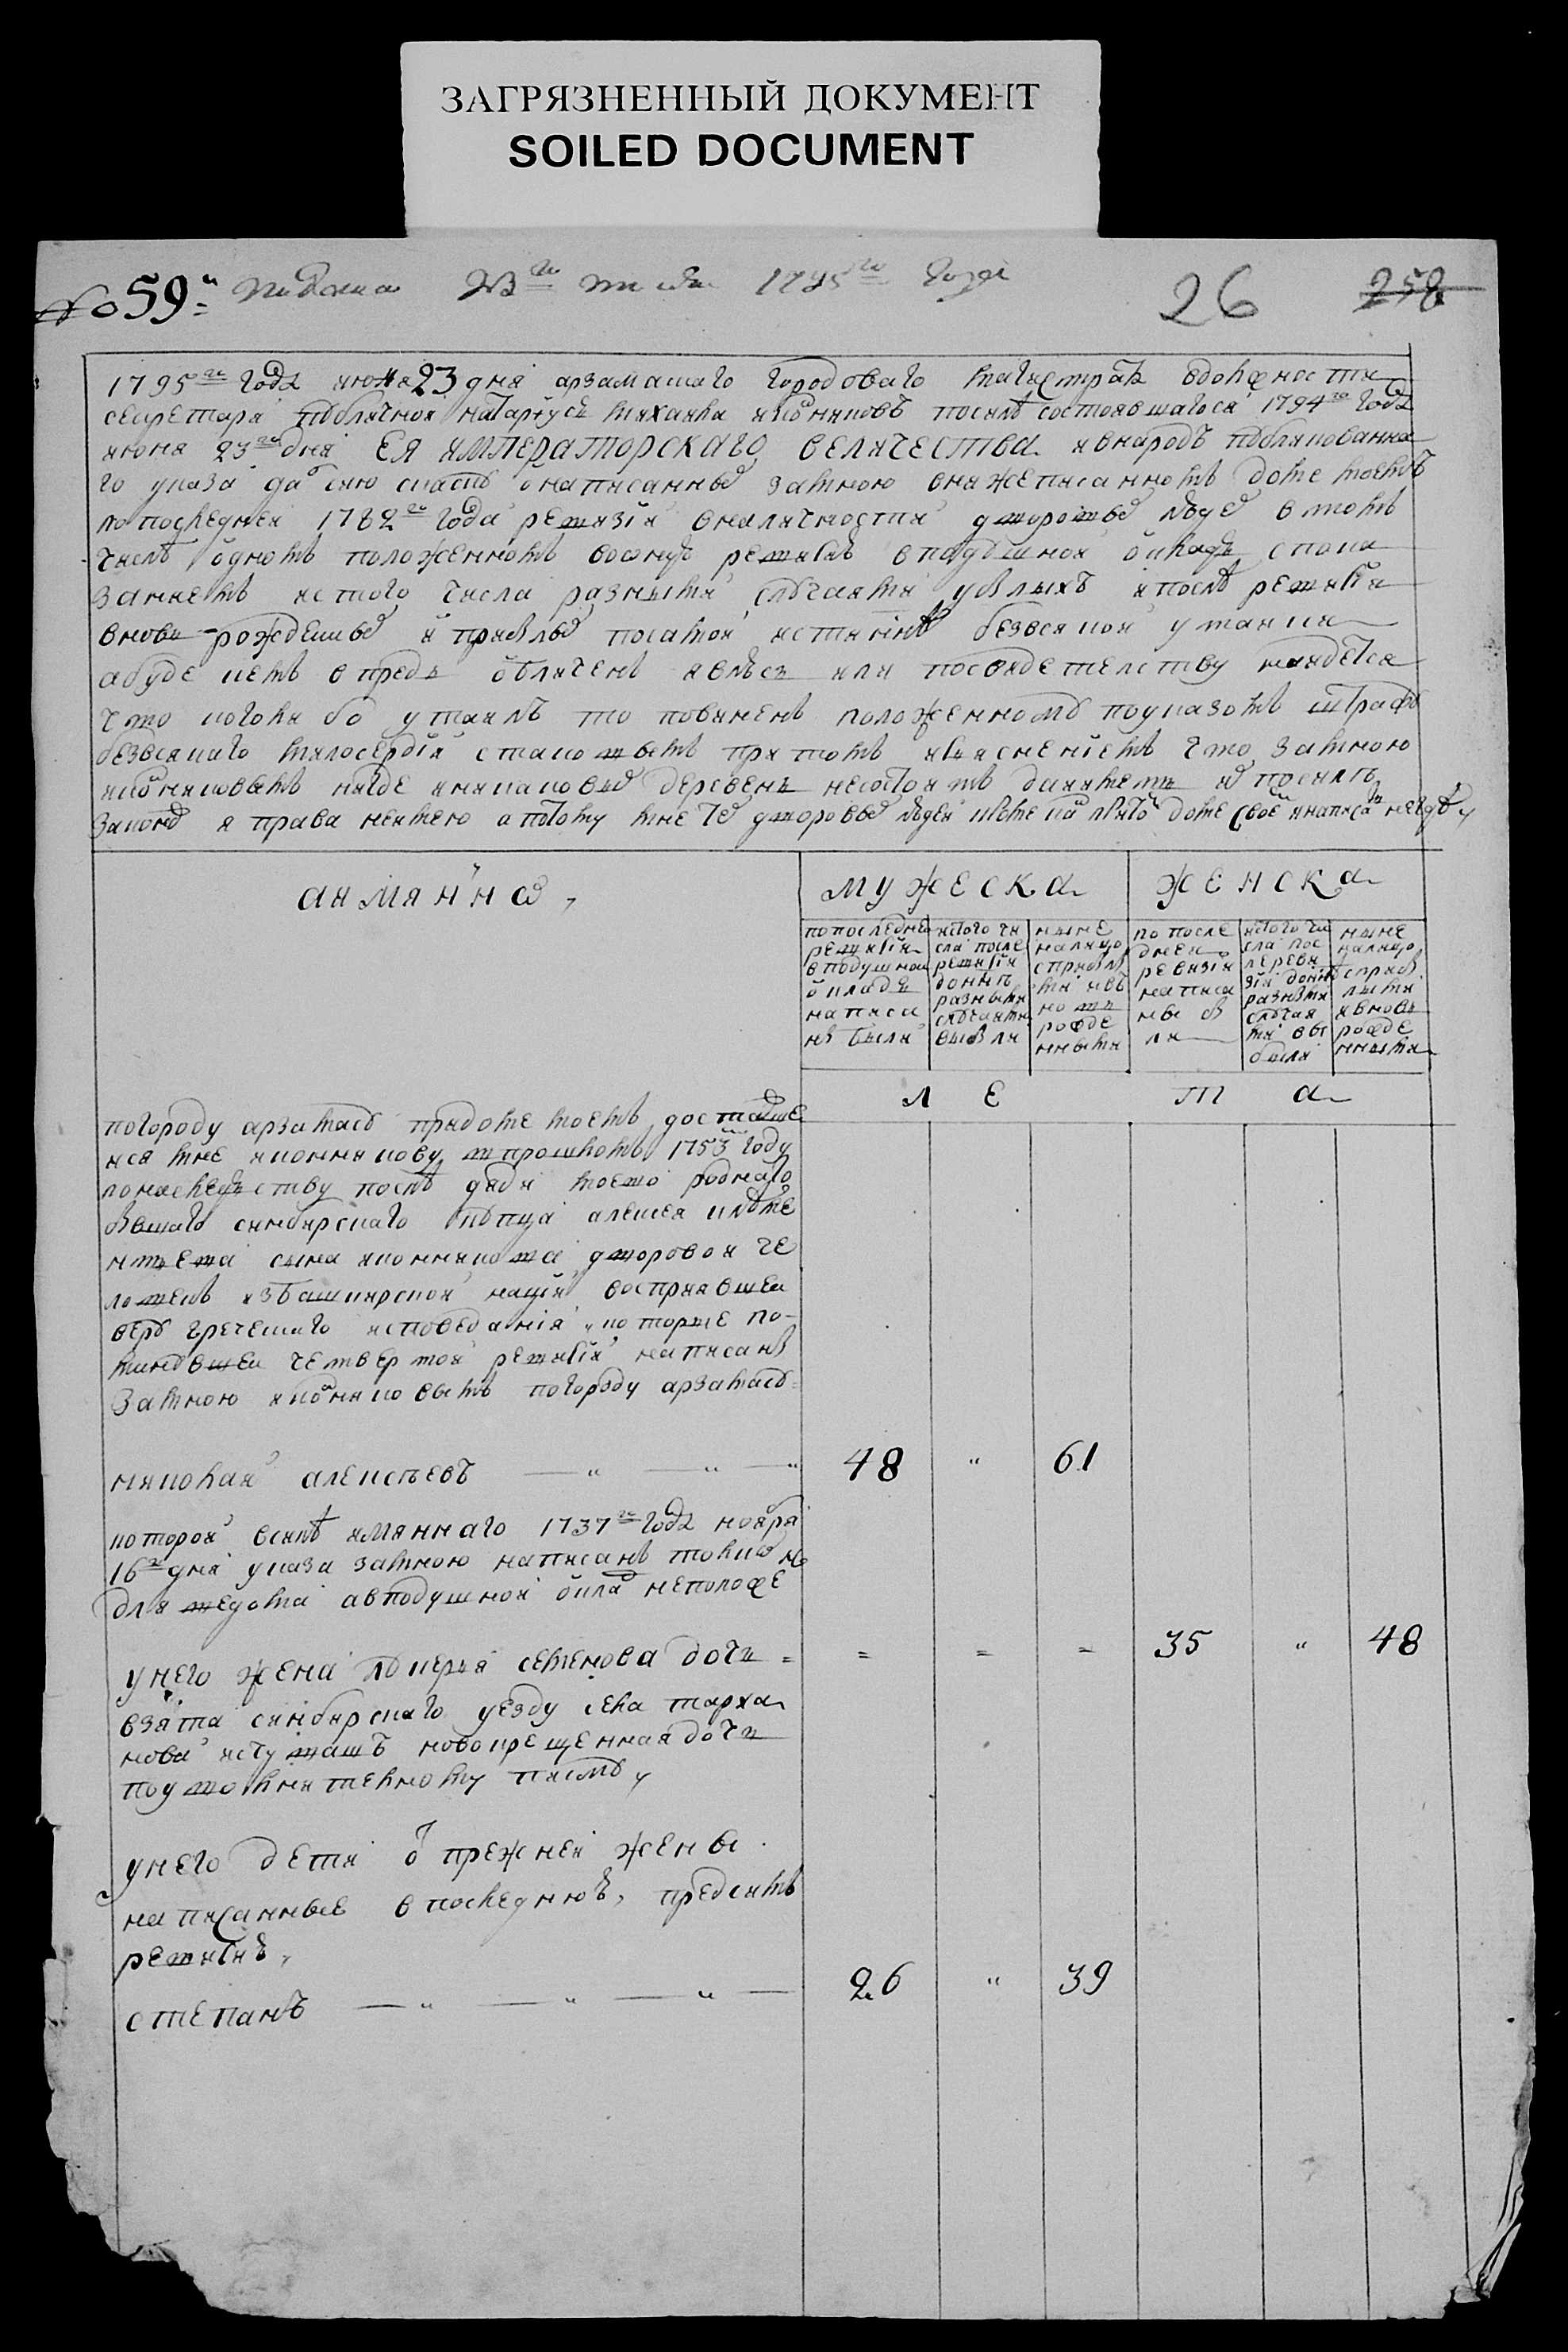 ЗАГРЯЗНЕННЫЙ ДОКУМЕНТ
SOILED DOCUMENT
№ 59й Подана 23го июня 1795го года 26 258
1795го года июня 23 дня арзамаскаго городоваго магистрата вдолжности
секретаря публичной натариусъ михаила иконниковъ посилѣ состоявшагося 1794го года
июня 23го дня ЕЯ ИМПЕРАТОРСКАГО ВЕЛИЧЕСТВА ивнародъ публикованна
го указа далъ сию скаску онаписанныхъ замною внижеписанномъ доме моемъ
попоследнеи 1782го года ревизiи вналичности дворовыхъ людехъ втомъ
числѣ одномъ положенномъ вооную ревизию вподушной окладъ спока
заниемъ истого числа разными случаями убылыхъ ипослѣ ревизiи
вновь рожденныхъ и прибылыхъ посамой истиннѣ безвсякой утаики
абуде кемъ впредь обличенъ явлюсь или посвидетелству наидется
что коголи бо утаилъ то повиненъ положенному поуказомъ штрафу
безвсякаго милосердiя стако выемъ притомъ изъяснениемъ что замною
иконниковымъ нигде иникаковыхъ деревень несостоитъ даииметь ихъ посилѣ
законовъ я права неимею апотому мне техъ дворовыхъ людей
аимянно, МУЖЕСКА ЖЕНСКА
попоследней ревизiи вподушной окладъ написаны были
истого числа после ревизiи доныне разными случаями выбыли
ныне налицо сприбылыми ивновь рожденными
попоследнеи ревизiи написаны были
истого числа после ревизiи доныне разными случаями выбыли
ныне налицо сприбылыми ивновь рожденными
Л Е Т А
погороду арзамасу придоме моемъ доставше
ися мне иконникову впрошломъ 1753м году
понаследству послѣ дяди моего роднаго
бывшаго синбирскаго купца алексея
сына иконникова дворовои че
ловекъ избашкирской нацiи восприявшеи
веру греческаго исповеданiя которые по
минувшеи четвертой ревизiи написанъ
замною иконниковымъ погороду арзамасу
николай алексѣевъ 48 " 61
которой всилѣ имяннаго 1737го года ноября
16го дня указа замною написанъ толко
для ведома авподушной окладъ неположе
нъ
унего жена лукерья семенова дочь = = = = 35 " 48
взята синбирскаго уезду села тарха
нова исчувашъ новокрещенная дочь
поуволнителному писму
унего дети от прежней жены
написанные впоследнюю, предсимъ
ревизию,
степанъ 26 " 39